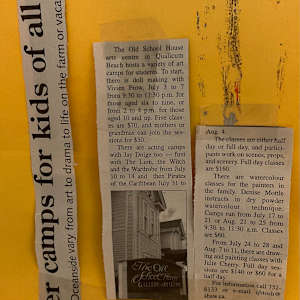 er camps for kids of all
Oceanside vary from art to drama to life on the farm or vaca
The Old School House
arts centre in Qualicum
Beach hosts a variety of art
camps for students. To start,
there is doll making with
Vivien Prow, July 3 to 7
from 9:30 to 12:30 p.m. for
those aged six to nine, or
from 2 to 4 p.m. for those
aged 10 and up. Five classes
are $70, and mothers or
grandmas can join the ses-
sions for $30.
There are acting camps
with Jay Dodge too — first
with The Lion, the Witch
and the Wardrobe from July
10 to 14 and then Pirates
of the Caribbean July 31 to
The Old
School House
Aug. 4.
The classes are either half
day or full day, and partici-
pants work on scenes, props,
and scenery. Full day classes
are $160.
There are watercolour
classes for the painters in
the family. Denise Mottle
instructs in dry powder
watercolour technique.
Camps run from July 17 to
21 or Aug. 21 to 25, from
9:30 to 11:30 a.m. Classes
are $60.
From July 24 to 28 and
Aug. 7 to 11, there are draw-
ing and painting classes with
Julie Cherry. Full day ses-
sions are $140 or $60 for a
half day.
For information call 752-
6133 or e-mail